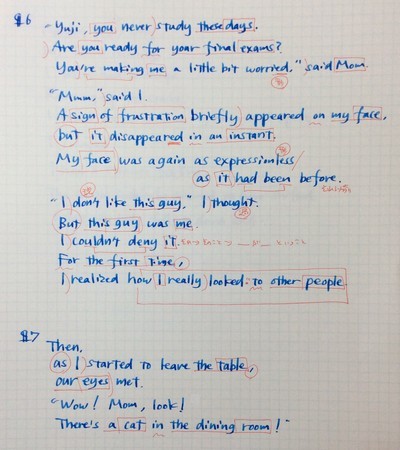 §6
"Yuji, you never study these days.
Are you ready for your final exams?
You're making me a little bit worried," said Mom.
"Mmm," said I.
A sign of frustration briefly appeared on my face,
but it disappeared in an instant.
My face was again as expressionless
as it had been before.
"I don't like this guy," I thought.
But this guy was me.
I couldn't deny it.
For the first time,
I realized how I really looked to other people.
§7
Then,
as I started to leave the table,
our eyes met.
"Wow! Mom, look!
There's a cat in the dining room!"